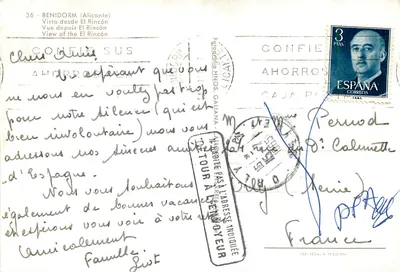 36 - BENIDORM (Alicante)
Vista desde El Rincón
Vue depuis El Rincón
View of the El Rincón
Chers Amis,
En espérant que vous
ne nous en voulez pas trop
pour notre silence (qui est
bien involontaire) nous vous
adressons nos sincères amitiés
d'Espagne.
Nous vous souhaitons
également de bonnes vacances
en espérons vous voir à votre
Amicalement.
Famille
CONFIE SUS
AHORROS
CONFIE
AHORROS
CAJA PO
3
PTAS
ESPAÑA
CORREOS
M. Pernod
du Dr Calmette
Orly (Seine)
France
N'HABITE PAS A L'ADRESSE INDIQUÉE
RETOUR A L'ENVOYEUR